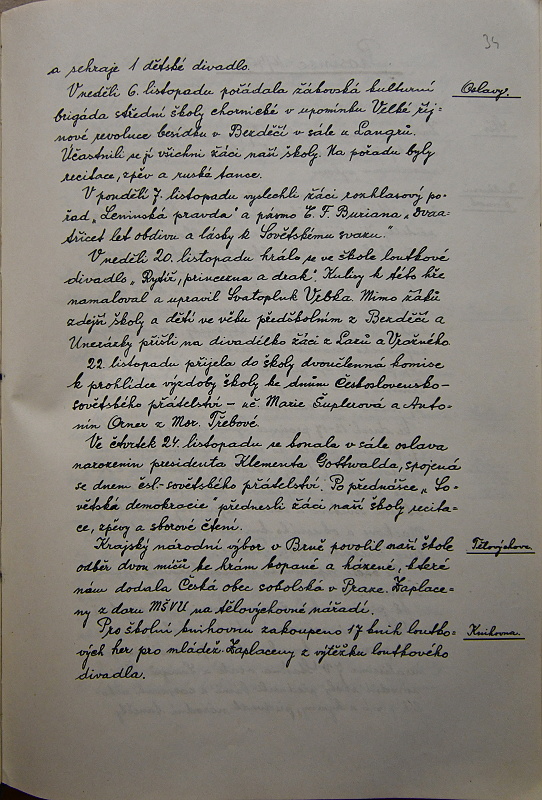 34
a sehraje 1 dětské divadlo.
V neděli 6. listopadu pořádala žákovská kulturní
Oslavy.
brigáda střední školy chornické v upomínku Velké říj-
nové revoluce besídku v Bezděčí v sále u Langrů.
Účastnili se jí všichni žáci naší školy. Na pořadu byly
recitace, zpěv a ruské tance.
V pondělí 7. listopadu vyslechli žáci rozhlasový po-
řad „Leninská pravda" a pásmo E. F. Buriana „Dvaa-
třicet let obdivu a lásky k Sovětskému svazu."
V neděli 20. listopadu hrálo se ve škole loutkové
divadlo „Rytíř, princezna a drak". Kulisy k této hře
namaloval a upravil Svatopluk Vébka. Mimo žáků
zdejší školy a dětí ve věku předškolním z Bezděčí a
Unerázky přišli na divadélko žáci z Lazů a Vrážného.
22. listopadu přijela do školy dvoučlenná komise
k prohlídce výzdoby školy ke dnům Československo-
sovětského přátelství – uč. Marie Šuplerová a Anto-
nín Orner z Mor. Třebové.
Ve čtvrtek 24. listopadu se konala v sále oslava
narozenin presidenta Klementa Gottwalda, spojená
se dnem čsl.-sovětského přátelství. Po přednášce „So-
větská demokracie" přednesli žáci naší školy recita-
ce, zpěvy a sborové čtení.
Krajský národní výbor v Brně povolil naší škole
Tělovýchova.
odběr dvou míčů ke hrám kopané a házené, které
nám dodala Česká obec sokolská v Praze. Zaplace-
ny z daru MŠVU na tělovýchovné nářadí.
Pro školní knihovnu zakoupeno 17 knih loutko-
Knihovna.
vých her pro mládež. Zaplaceny z výtěžku loutkového
divadla.